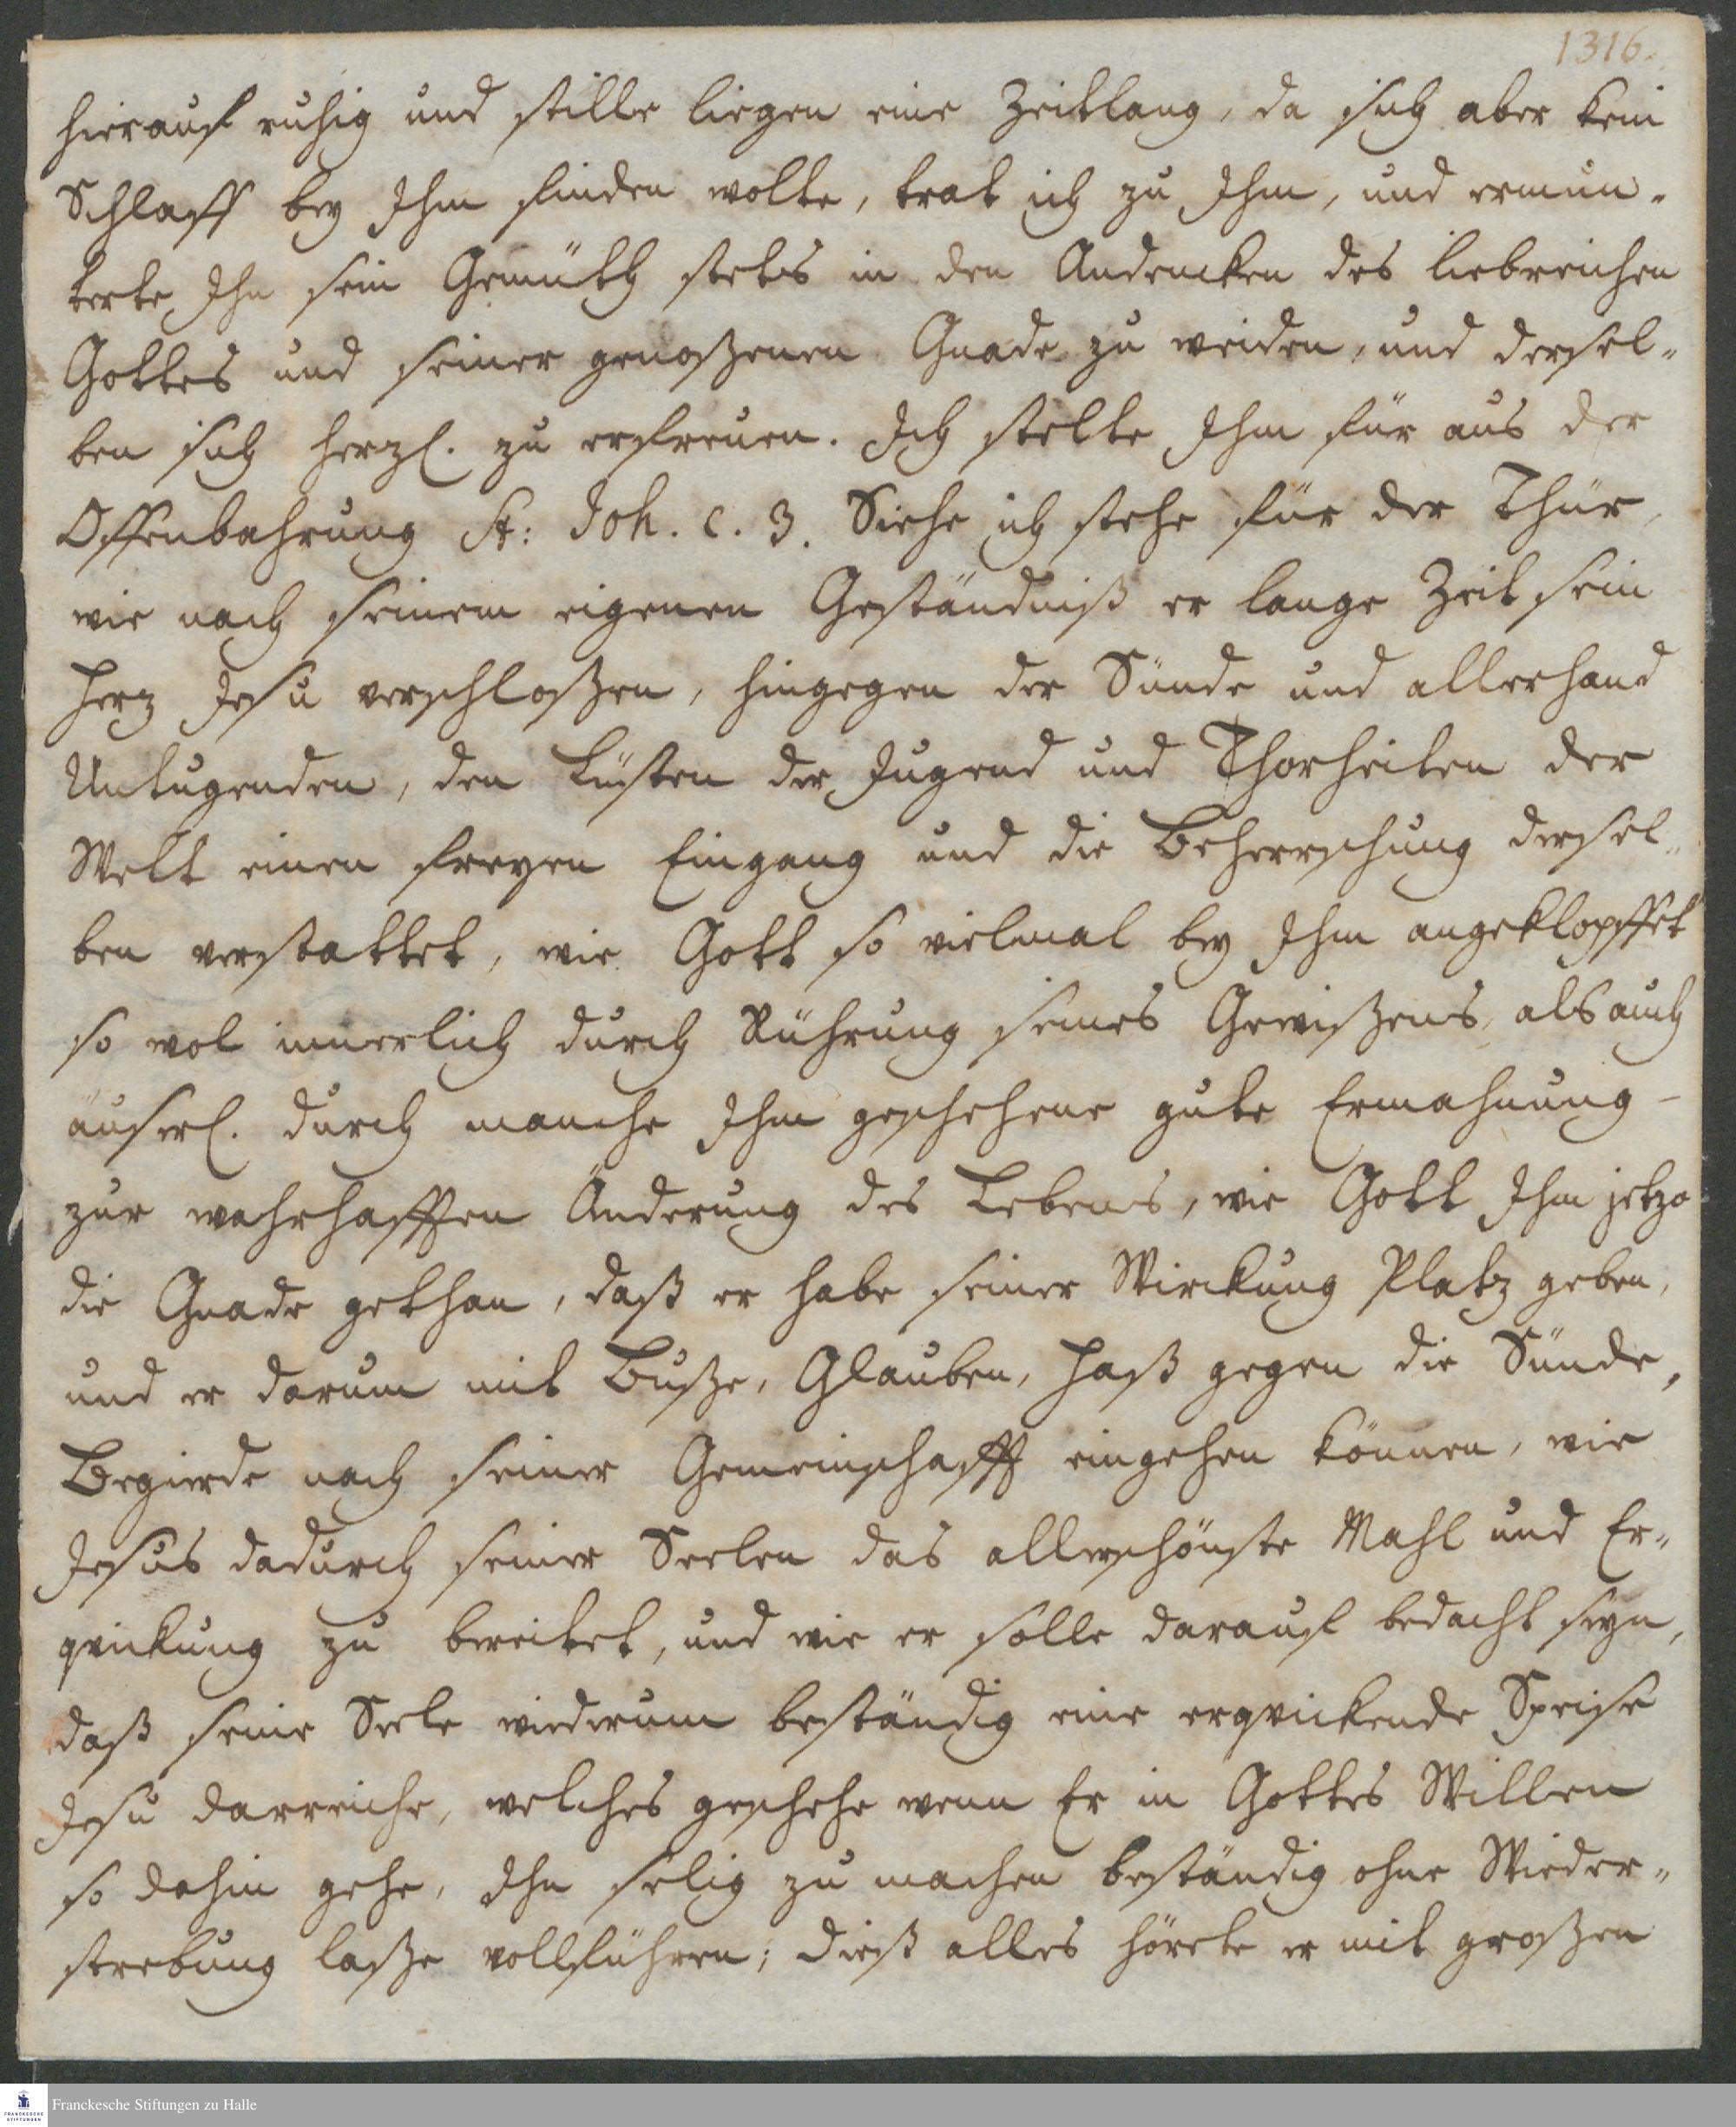 1316.
hierauf ruhig und stille liegen eine Zeitlang, da sich aber kein
Schlaff bey Ihm finden wolte, trat ich zu Ihm, und ermun-
terte Ihn sein Gemüth stets in den Andencken des liebreichen
Gottes und seiner genoßenen Gnade zu weiden, und dersel-
ben sich herzl. zu erfreuen. Ich stelte Ihm für aus der
Offenbahrung St: Joh. c. 3. Siehe ich stehe für der Thür,
wie nach seinem eigenen Geständniß er lange Zeit sein
Herz Jesu verschloßen, hingegen der Sünde und allerhand
Untugenden, den Lüsten der Jugend und Thorheiten der
Welt einen freyen Eingang und die Beherrschung dersel-
ben verstattet, wie Gott so vielmal bey Ihm angeklopffet
so wol innerlich durch Rührung seines Gewißens, als auch
äuserl. durch manche Ihm geschehene gute Ermahnung -
zur wahrhafften Änderung des Lebens, wie Gott Ihm jetzo
die Gnade gethan, daß er habe seiner Wirckung Platz geben,
und er darum mit Buße, Glauben, Haß gegen die Sünde,
Begierde nach seiner Gemeinschafft eingehen können, wie
Jesus dadurch seiner Seelen das allerschönste Mahl und Er-
qvickung zu bereitet, und wie er solle darauf bedacht seyn,
daß seine Seele wiederum beständig eine erqvickende Speise
Jesu darreiche, welches geschehe wenn Er in Gottes Willen
so dahin gehe, Ihn selig zu machen beständig ohne Wieder-
strebung laße vollführen; dieß alles hörete er mit großen
Franckesche Stiftungen zu Halle